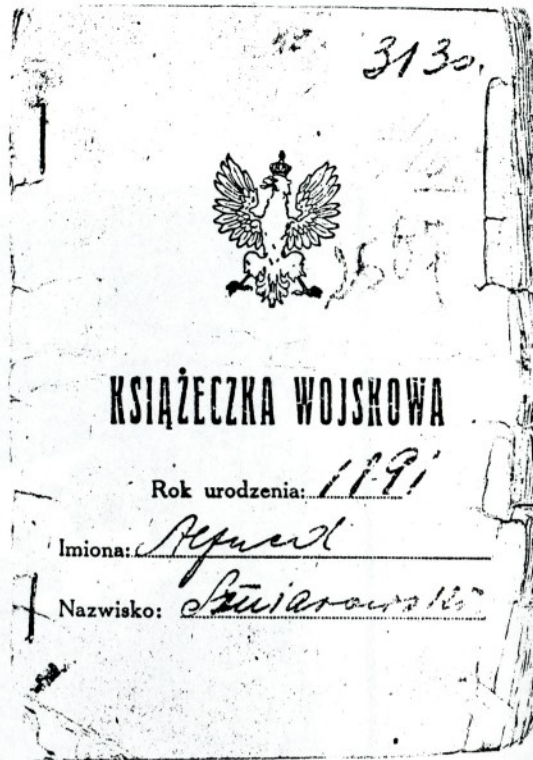 3130.
KSIĄŻECZKA WOJSKOWA
Rok urodzenia: 1891
Imiona: Alfred
Nazwisko: